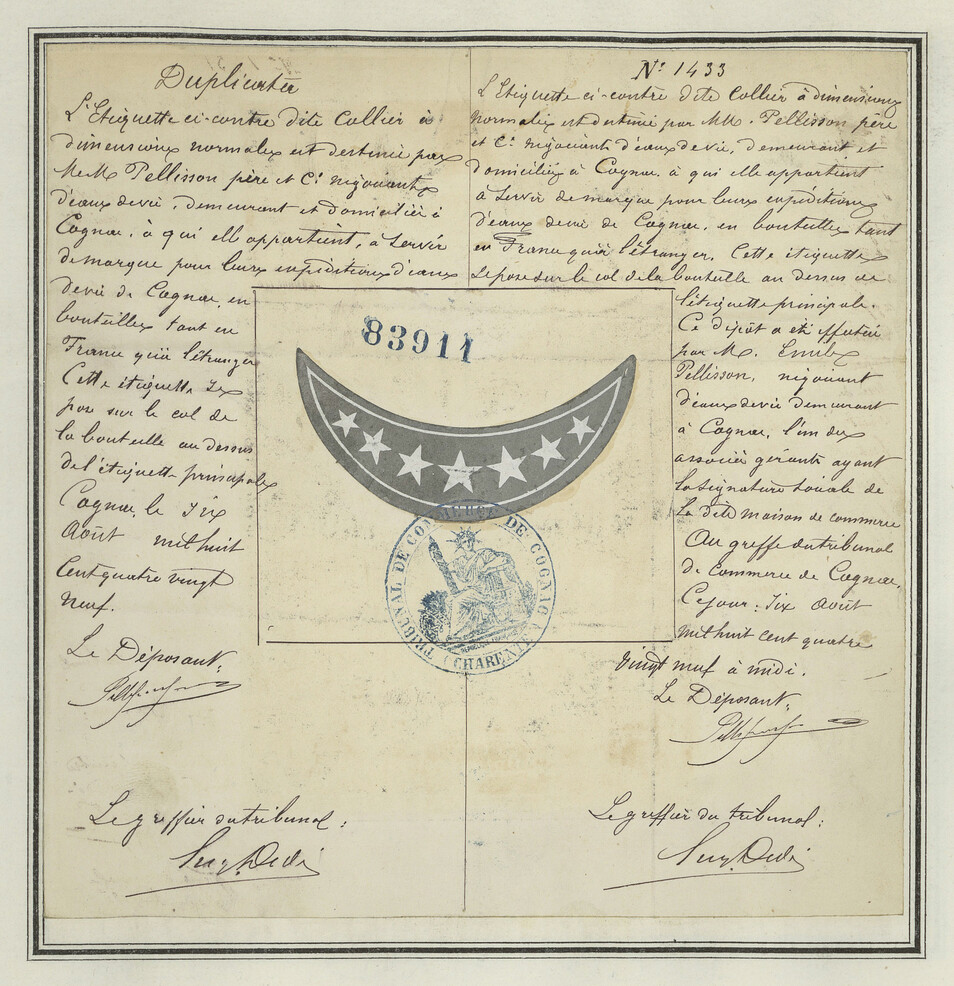 Duplicata
L'Etiquette ci-contre dite Collier à
dimensions normales est destinée par
MM. Pellisson père et Cie négociants
d'eaux devie, demeurant et domiciliés à
Cognac, à qui elle appartient, à servir
de marque pour leurs expéditions d'eaux
devie de Cognac, en
bouteilles tant en
France qu'à l'étranger
Cette étiquette se
pose sur le col de
la bouteille au dessus
de l'étiquette principale
Cognac, le six
Août mil huit
cent quatre vingt
neuf.
Le Déposant,
Le greffier du tribunal :
No 1433
L'Etiquette ci-contre dite Collier à dimensions
normales est destinée par MM. Pellisson père
et Cie négociants d'eaux devie, demeurant et
domiciliés à Cognac, à qui elle appartient
à servir de marque pour leurs expéditions
d'eaux devie de Cognac, en bouteilles tant
en France qu'à l'étranger. Cette étiquette
se pose sur le col de la bouteille au dessus de
l'étiquette principale.
Ce dépôt a été effectué
par M. Emile
Pellisson, négociant
d'eaux devie demeurant
à Cognac, l'un des
associés gérants ayant
la signature sociale de
la dite maison de commerce
Au greffe du tribunal
de Commerce de Cognac,
Ce jour : six Août
mil huit cent quatre
vingt neuf à midi.
Le Déposant,
Le greffier du tribunal :
83911
TRIBUNAL DE COMMERCE DE COGNAC
(CHARENTE)